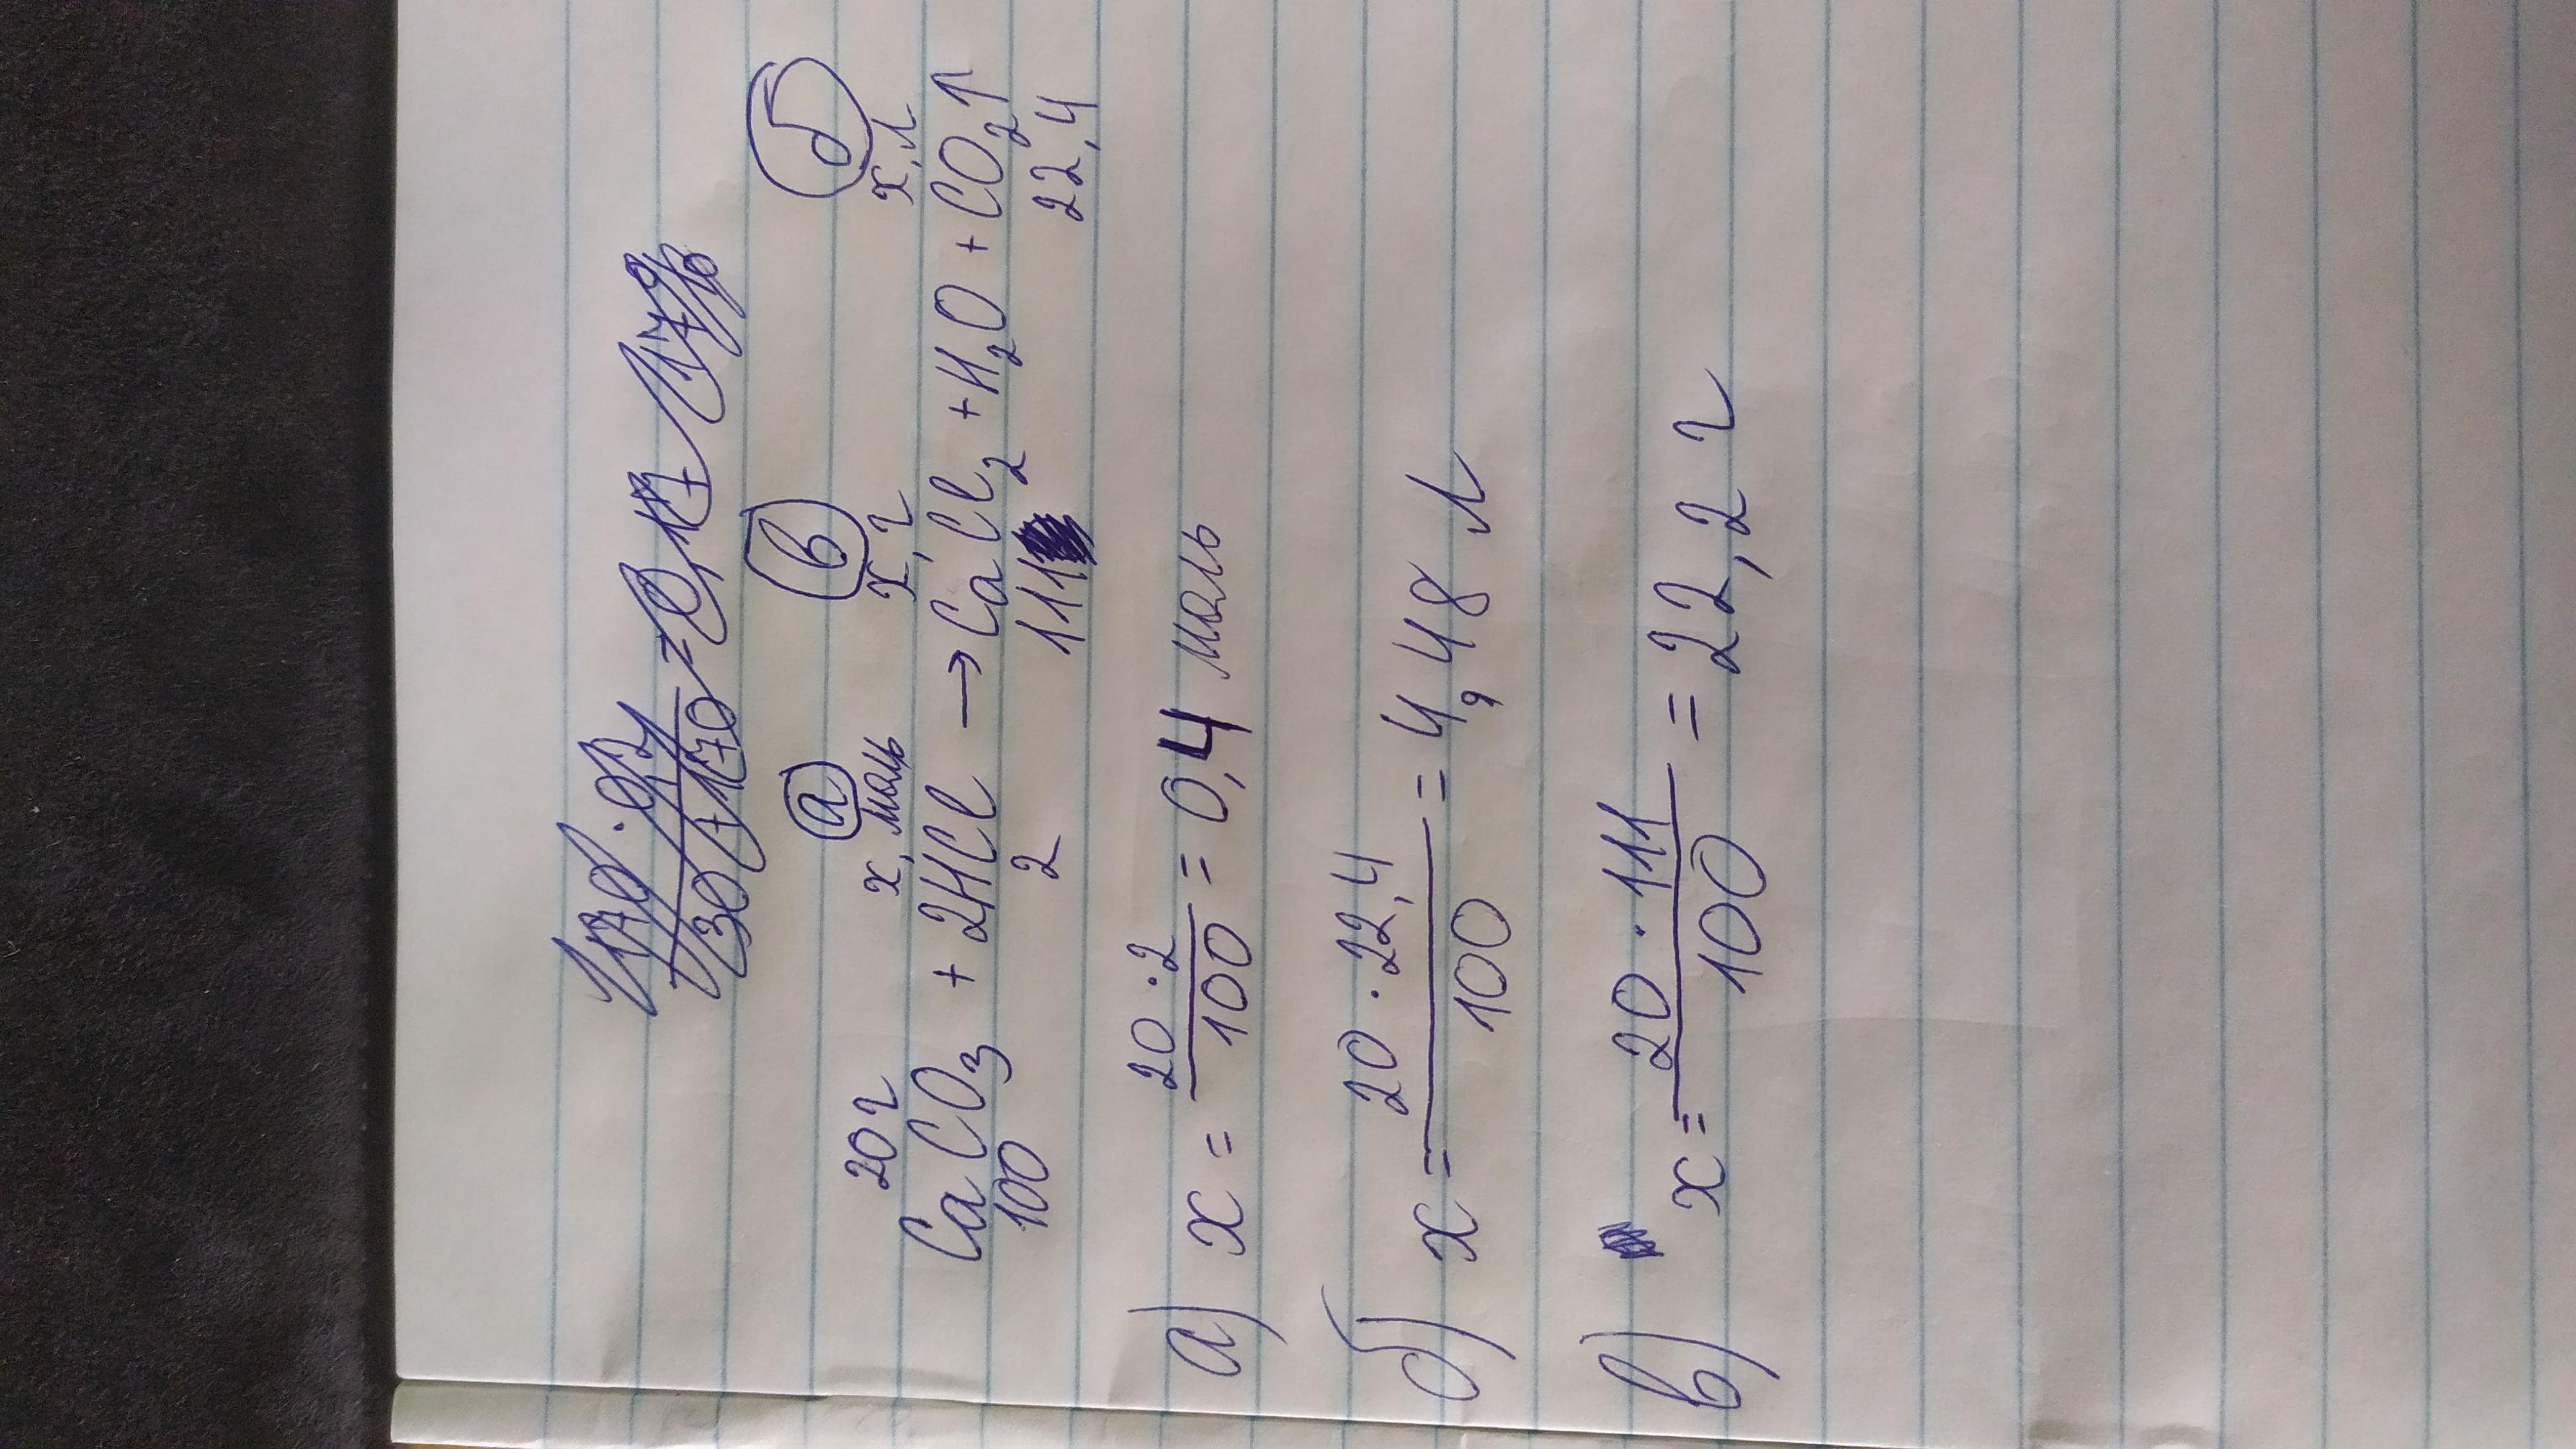 а б в
20 г х, моль х, г х, л
CaCO₃ + 2HCl → CaCl₂ + H₂O + CO₂↑
100 2 111 22,4
а) x = 20 · 2 / 100 = 0,4 моль
б) x = 20 · 22,4 / 100 = 4,48 л
в) x = 20 · 111 / 100 = 22,2 г